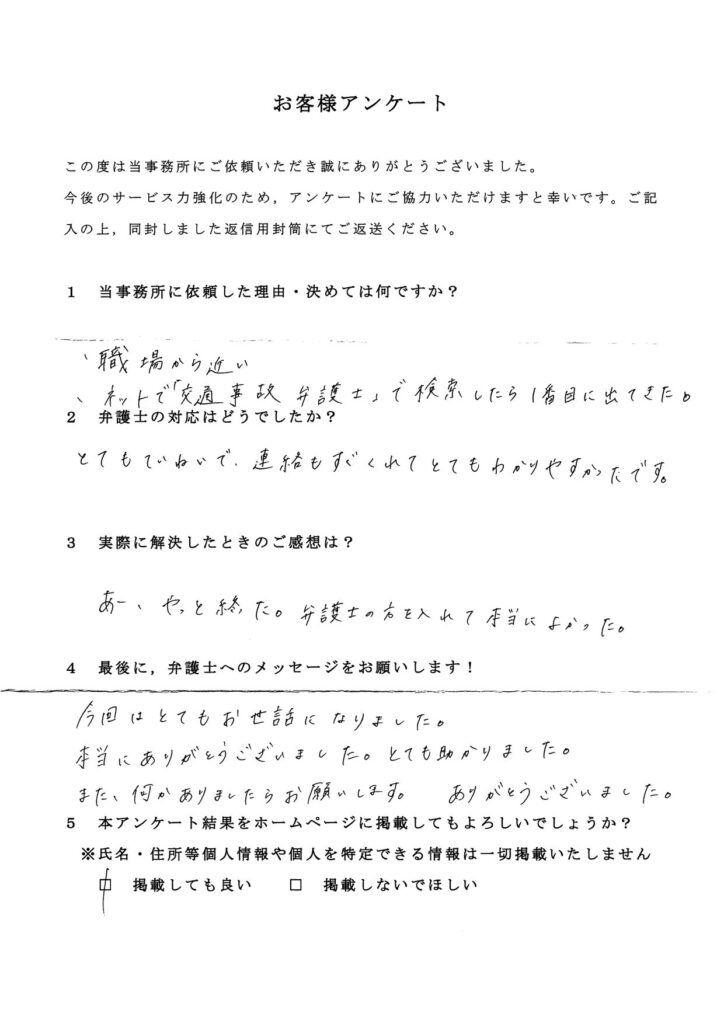 お客様アンケート
この度は当事務所にご依頼いただき誠にありがとうございました。
今後のサービス力強化のため，アンケートにご協力いただけますと幸いです。ご記
入の上，同封しました返信用封筒にてご返送ください。
1　当事務所に依頼した理由・決めては何ですか？
、職場から近い
、ネットで「交通事故 弁護士」で検索したら1番目に出てきた。
2　弁護士の対応はどうでしたか？
とてもていねいで、連絡もすぐくれてとてもわかりやすかったです。
3　実際に解決したときのご感想は？
あー、やっと終った。弁護士の方を入れて本当によかった。
4　最後に，弁護士へのメッセージをお願いします！
今回はとてもお世話になりました。
本当にありがとうございました。とても助かりました。
また、何かありましたらお願いします。　ありがとうございました。
5　本アンケート結果をホームページに掲載してもよろしいでしょうか？
※氏名・住所等個人情報や個人を特定できる情報は一切掲載いたしません
□　掲載しても良い　　□　掲載しないでほしい